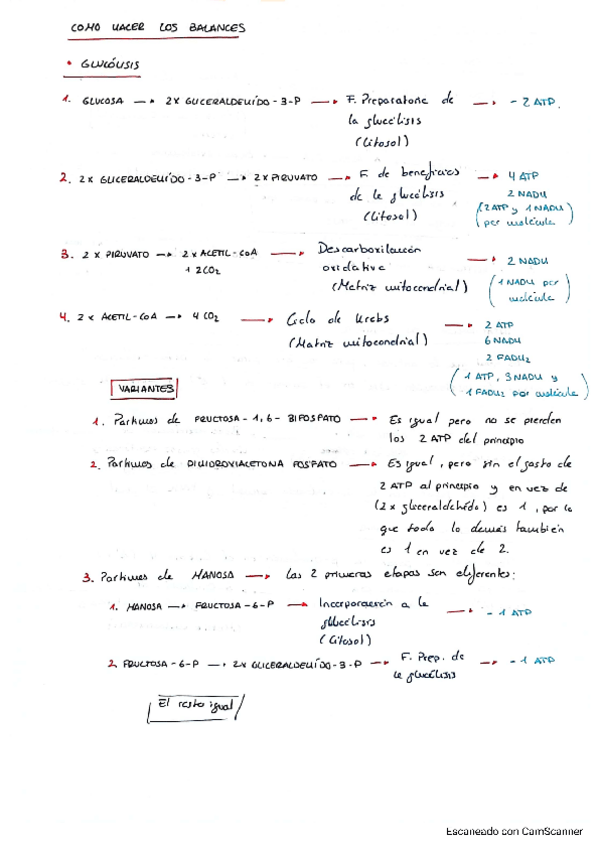 COMO HACER LOS BALANCES
• GLUCÓLISIS
1. GLUCOSA → 2X GLICERALDEHÍDO-3-P → F. Preparatoria de → -2 ATP.
la glucólisis
(Citosol)
2. 2x GLICERALDEHÍDO-3-P → 2X PIRUVATO → F. de beneficios → 4 ATP
de la glucólisis 2 NADH
(Citosol) (2 ATP y 1 NADH
per molécula)
3. 2 x PIRUVATO → 2 x ACETIL-COA → Descarboxilación → 2 NADH
1 2CO2 oxidativa (1 NADH per
(Matriz mitocondrial) molécula)
4. 2 x ACETIL-COA → 4 CO2 → Ciclo de Krebs → 2 ATP
(Matriz mitocondrial) 6 NADH
2 FADH2
(1 ATP, 3 NADH y
1 FADH2 por molécula)
VARIANTES
1. Partimos de FRUCTOSA-1,6-BIFOSFATO → Es igual pero no se pierden
los 2 ATP del principio
2. Partimos de DIHIDROXIACETONA FOSFATO → Es igual, pero sin el gasto de
2 ATP al principio y en vez de
(2x gliceraldehído) es 1, por lo
que todo lo demás también
es 1 en vez de 2.
3. Partimos de MANOSA → Las 2 primeras etapas son diferentes:
1. MANOSA → FRUCTOSA-6-P → Incorporación a la → -1 ATP
glucólisis
(Citosol)
2. FRUCTOSA-6-P → 2x GLICERALDEHÍDO-3-P → F. Prep. de → -1 ATP
la glucólisis
El resto igual
Escaneado con CamScanner